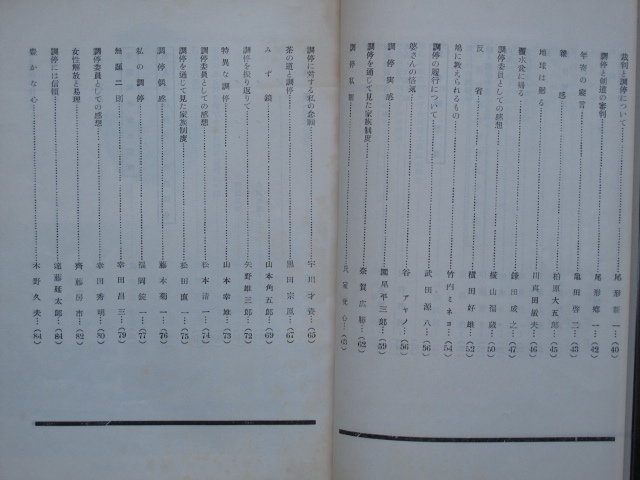 裁判と調停について……尾形 一…(40)
調停と徳道の審判……尾形郷一…(42)
年寄の寝言……亀田啓二…(43)
雑感……柏原大五郎…(45)
地球は廻る……川真田敏夫…(46)
覆水盆に帰る……鎌田成之…(47)
調停委員としての感想……横山福蔵…(50)
反省……横田好雄…(52)
鳩に教えられるもの……竹内ミネヨ…(54)
調停の履行について……武田源八…(56)
婆さんの伝通……谷アヤノ…(56)
調停実感……關屋平三郎…(59)
調停を通じて見た家族制度……斎賀広勝…(62)
調停私観……心…(63)
調停に対する私の念願……宇田才資…(65)
茶の道と調停……黒田宗…(67)
みず鏡……山本角五郎…(69)
調停を振り返りて……矢野雄三郎…(72)
特異な調停……山本幸雄…(73)
調停委員としての感想……松本清一…(74)
調停を通じて見た家族制度……松田直一…(75)
調停偶感……藤本菊一…(76)
私の調停……福岡 一…(77)
無題二則……幸田昌三…(79)
調停委員としての感想……幸田秀明…(80)
女性解放と易理……齊藤房市…(82)
調停には信頼……遠藤延太郎…(84)
豊かな心……木野久夫…(84)